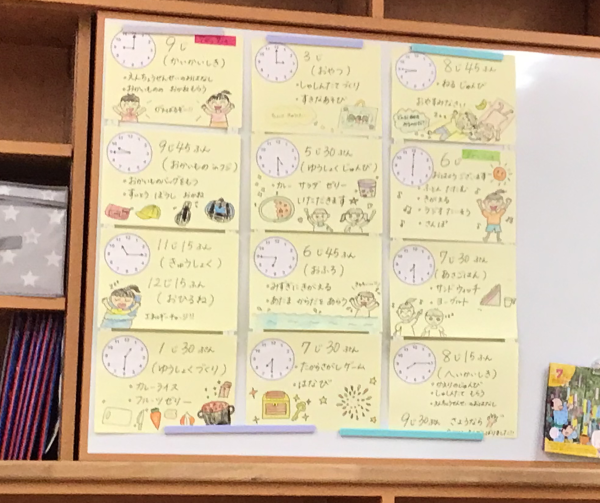 9じ
(かいかいしき)
・えんちょうせんせいのおはなし
・おかいものの おかねもらう
がんばるぞー!!
9じ45ふん
・おかいものバッグをもつ
・すいとう ぼうし おかね
11じ15ふん
(きゅうしょく)
12じ15ふん
(おひるね)
エネルギーチャージ!!
1じ30ふん
(ゆうしょくづくり)
・カレーライス
・フルーツゼリー
3じ
(おやつ)
・しゃしんたてづくり
・すきだあそび
5じ30ふん
(ゆうしょくじゅんび)
・カレー サラダ ゼリー
いただきます☆
6じ45ふん
(おふろ)
・みずぎにきがえる
・あたま からだを あらう
7じ30ふん
・たからさがしゲーム
・はなび
8じ45ふん
・ねるじゅんび
おやすみなさい
6じ
(おはようございます)
・ふとん たたむ
・きがえる
・ラジオたいそう
・さんぽ
7じ30ふん
(あさごはん)
・サンドウィッチ
・ヨーグルト
8じ15ふん
(へいかいしき)
・しゃしんたて もらう
9じ30ふん さようなら
7